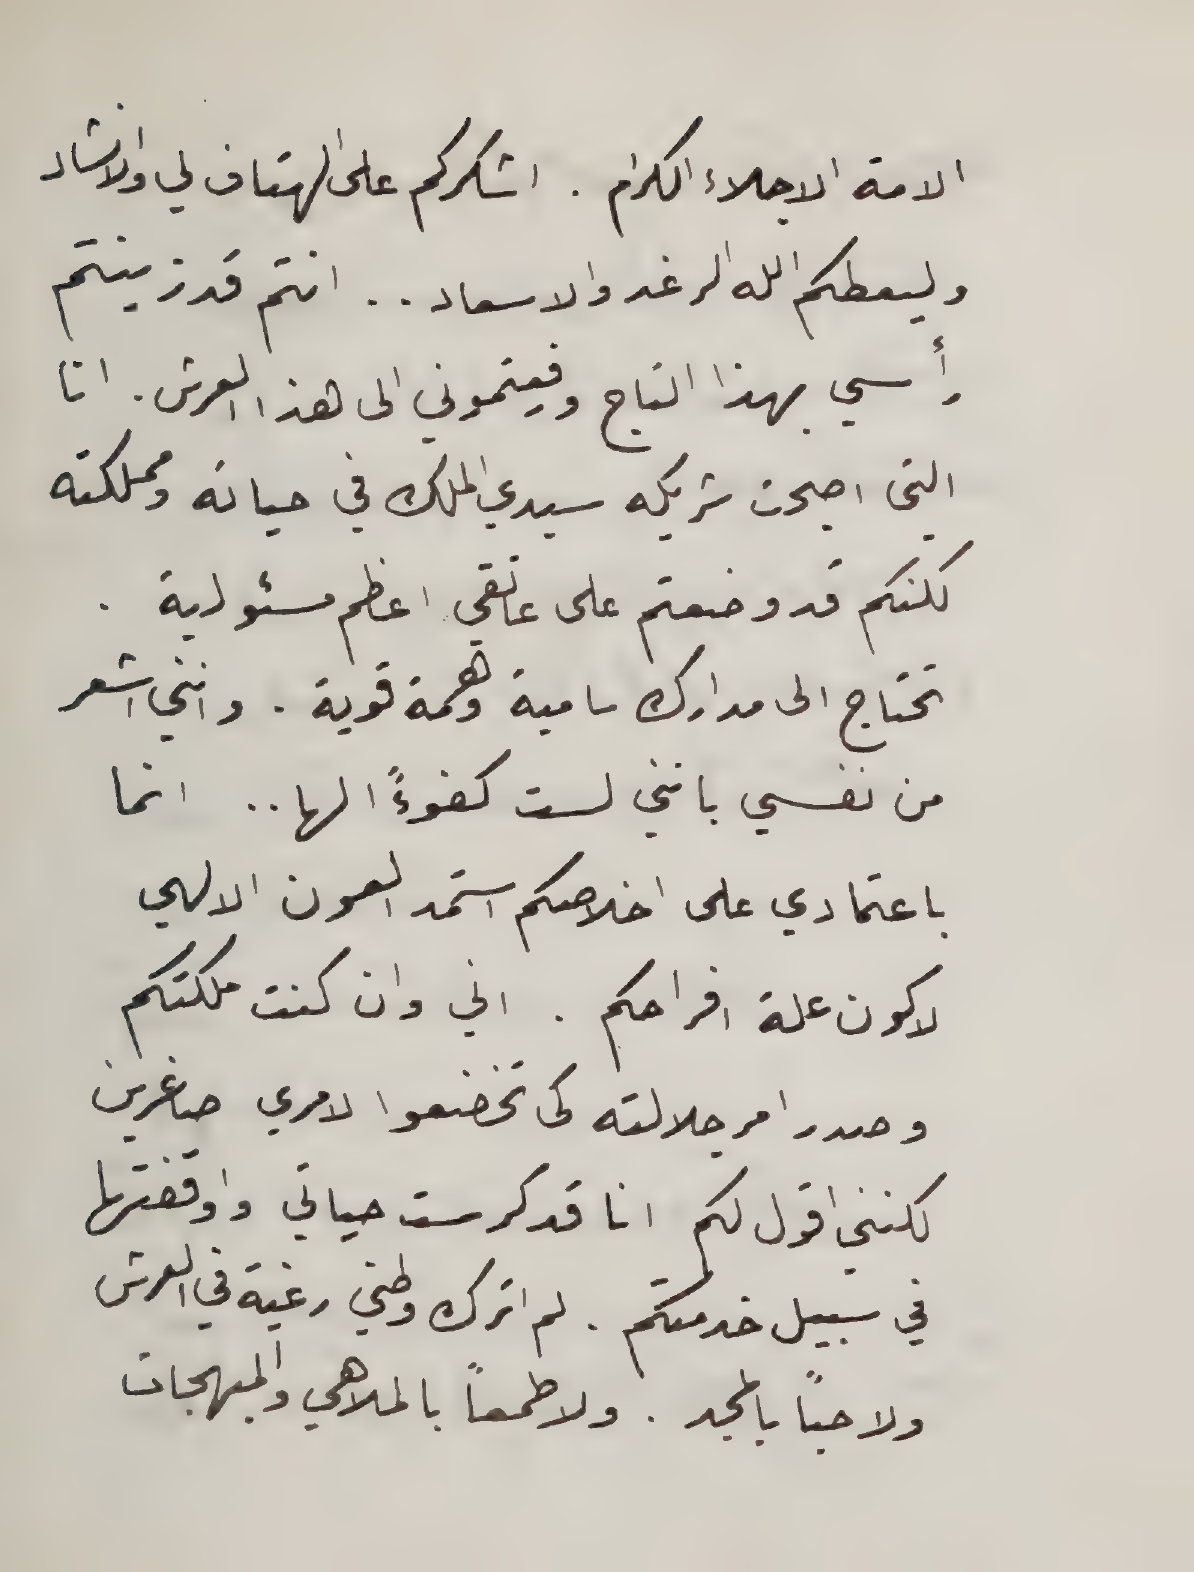 الامة الاجلاء الكرام . اشكركم على الهتاف لي والانشاد
وليعطكم الله الرغد والاسعاد .. انتم قد زينتم
رأسي بهذا التاج ورفعتموني الى هذا العرش . انا
التي اصبحت شريكه سيدي الملك في حياته ومملكته
لكنكم قد وضعتم على عاتقي اعظم مسئولية .
تحتاج الى مدارك سامية وهمة قوية . وانني اشعر
من نفسي بانني لست كفوءً الها .. انما
باعتمادي على اخلاصكم استمد العون الالهي
لاكون علة افراحكم . اني وان كنت ملكتكم
وصدر امر جلالته كى تخضعوا لامري صاغرين
لكنني اقول لكم انا قد كرست حياتي واوقفتها
في سبيل خدمتكم . لم اترك وطني رغبة في العرش
ولا حباً بالمجد . ولا طمعاً بالملاهي والمبهجات